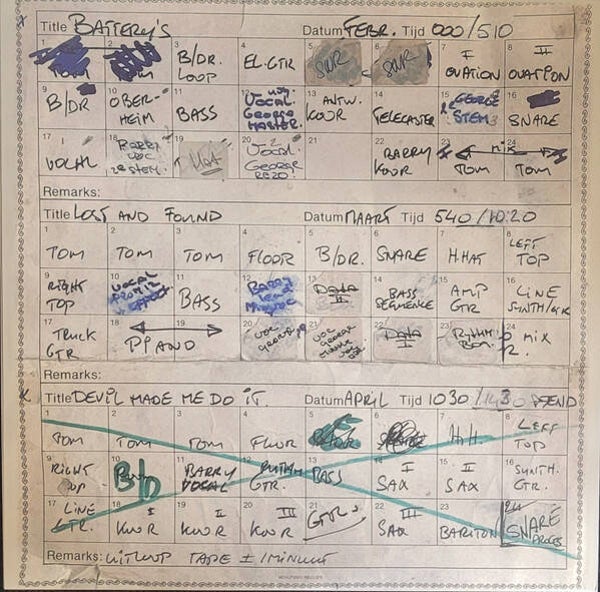 Title BATTERY'S Datum FEBR. Tijd 000/510
1 TOM 2 3 B/DR. LOOP 4 EL.GTR 5 SNR 6 SNR 7 I OVATION 8 II OVATION
9 B/DR 10 OBER-HEIM 11 BASS 12 VOCAL GEORGE MASTER. 13 ANTW. KOOR 14 TELECASTER 15 GEORGE STEM 3 16 SNARE
17 VOCAL 18 BARRY VOC 2e STEM. 19 20 VOCAL GEORGE 21 22 BARRY KOOR 23 TOM mix 24 TOM
Remarks:
Title LOST AND FOUND Datum MAART Tijd 540/1020
1 TOM 2 TOM 3 TOM 4 FLOOR 5 B/DR. 6 SNARE 7 H.HAT 8 LEFT TOP
9 RIGHT TOP 10 VOCAL EFFECT 11 BASS 12 BARRY 13 DATA II 14 BASS SEQUENCE 15 AMP GTR 16 LINE
17 TRUCK GTR 18 PIANO 19 20 VOC GEORGE 21 VOC GEORGE 22 DATA I 23 24 mix R.
Remarks:
Title DEVIL MADE ME DO IT. Datum APRIL Tijd 1030
1 TOM 2 TOM 3 TOM 4 FLUUR 5 6 7 H.H. 8 LEFT TOP
9 RIGHT TOP 10 B/D 11 BARRY VOCAL 12 GTR. 13 BASS 14 I SAX 15 II SAX 16 SYNTH. GTR.
17 LINE GTR. 18 I KOOR 19 II KOOR 20 III KOOR 21 GTR. 22 III SAX 23 BARITON 24 SNARE
Remarks: UITLOUP TAPE ± 1 MINUUT